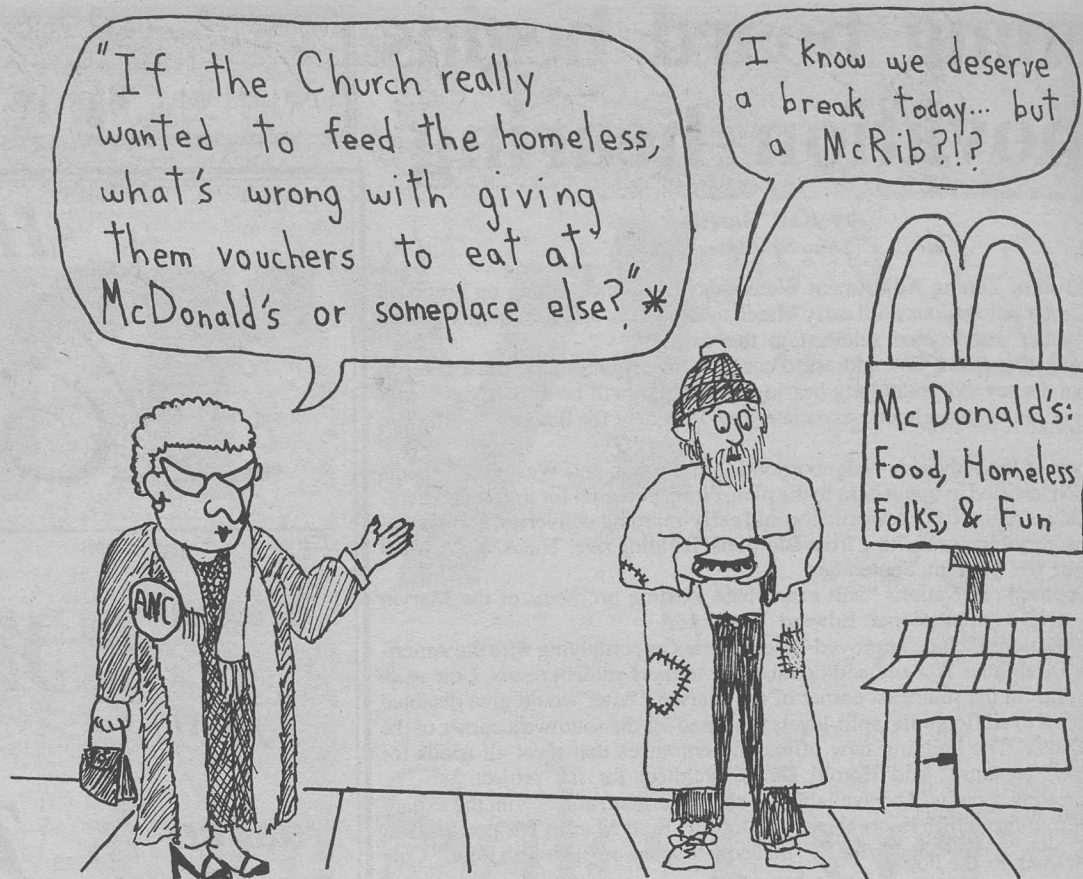 "If the Church really
wanted to feed the homeless,
what's wrong with giving
them vouchers to eat at
McDonald's or someplace else?" *
I know we deserve
a break today... but
a McRib?!?
McDonald's:
Food, Homeless
Folks, & Fun
ANC